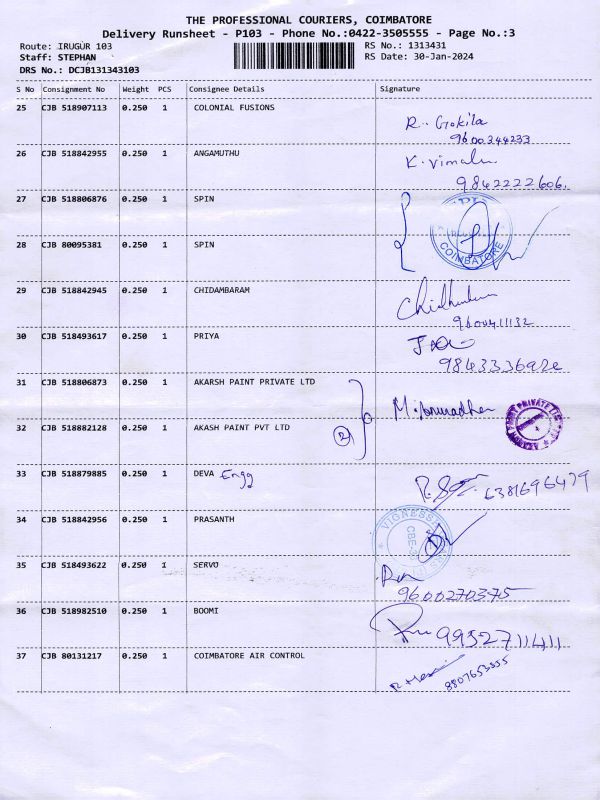 THE PROFESSIONAL COURIERS, COIMBATORE
Delivery Runsheet - P103 - Phone No.:0422-3505555 - Page No.:3
Route: IRUGUR 103
RS No.: 1313431
Staff: STEPHAN
RS Date: 30-Jan-2024
DRS No.: DCJB131343103
S No Consignment No Weight PCS Consignee Details Signature
25 CJB 518907113 0.250 1 COLONIAL FUSIONS R. Gokila
9600344233
26 CJB 518842955 0.250 1 ANGAMUTHU K. Vimala
9842222606.
27 CJB 518806876 0.250 1 SPIN
28 CJB 80095381 0.250 1 SPIN
COIMBATORE
29 CJB 518842945 0.250 1 CHIDAMBARAM
9600411132
30 CJB 518493617 0.250 1 PRIYA
31 CJB 518806873 0.250 1 AKARSH PAINT PRIVATE LTD
M. Anuradha
32 CJB 518882128 0.250 1 AKASH PAINT PVT LTD
2
33 CJB 518879885 0.250 1 DEVA Engg
6381696479
34 CJB 518842956 0.250 1 PRASANTH
35 CJB 518493622 0.250 1 SERVO
9600270375
36 CJB 518982510 0.250 1 BOOMI
9952711411
37 CJB 80131217 0.250 1 COIMBATORE AIR CONTROL
8807653555